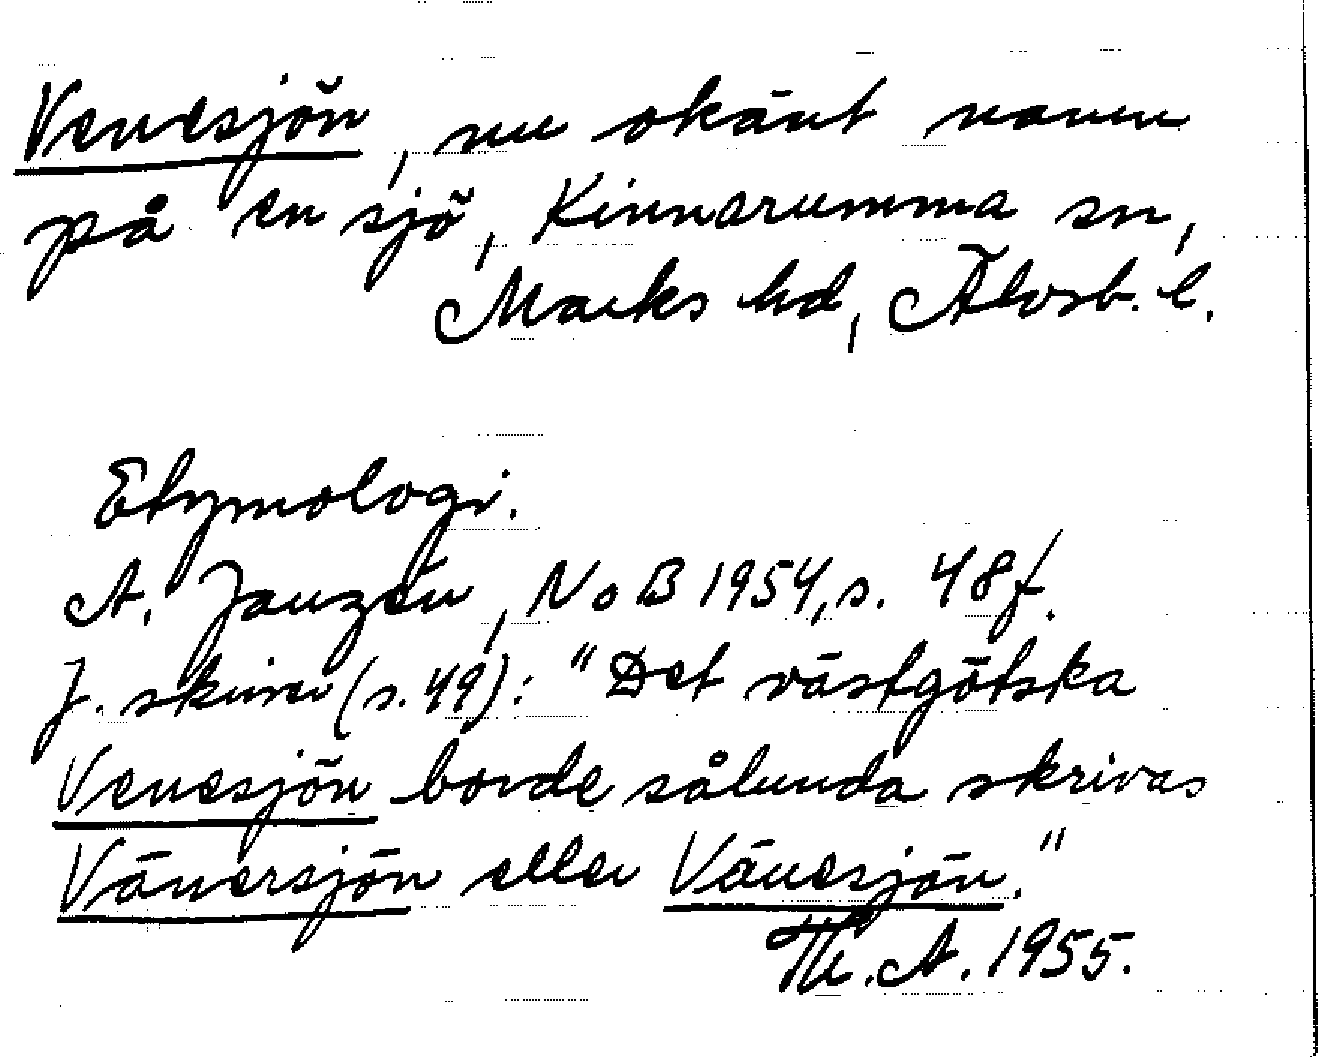 Venesjön, nu okänt namn
på en sjö, Kinnarumma sn,
Marks hd, Älvsb. l.
Etymologi.
A. Janzén, NoB 1954, s. 48 f.
J. skriver (s. 49): "Det västgötska
Venesjön borde sålunda skrivas
Vänersjön eller Vänesjön."
Th. A. 1955.